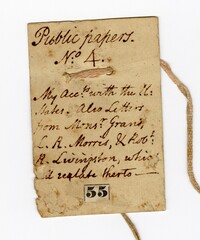 Public papers.
No. 4.
My Accts with the U.
States. Also Letters
from Monsr Grand,
L. R. Morris, & Robt
R. Livingston, which
relate thereto —
55